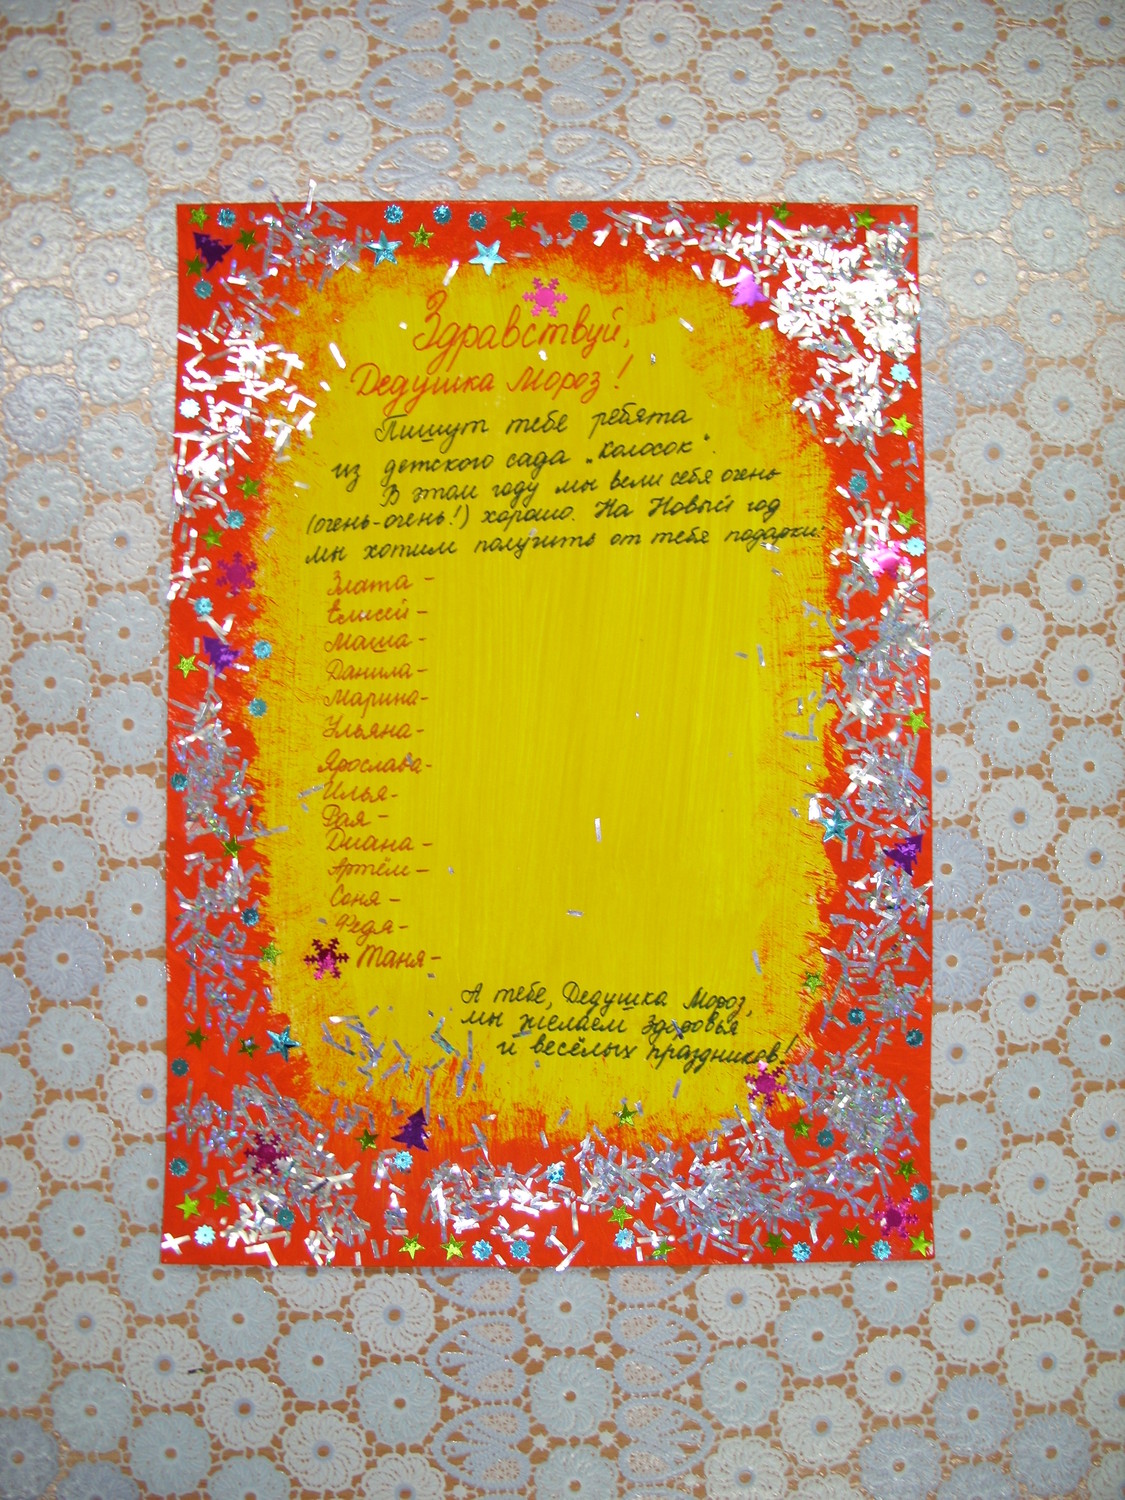 Здравствуй,
Дедушка Мороз!
Пишут тебе ребята
из детского сада „Колосок".
В этом году мы вели себя очень
(очень-очень!) хорошо. На Новый год
мы хотим получить от тебя подарки:
Злата -
Елисей -
Маша -
Данила -
Марина -
Ульяна -
Ярослава -
Илья -
Рая -
Диана -
Артём -
Соня -
Федя -
Таня -
А тебе, Дедушка Мороз,
мы желаем здоровья
и весёлых праздников!